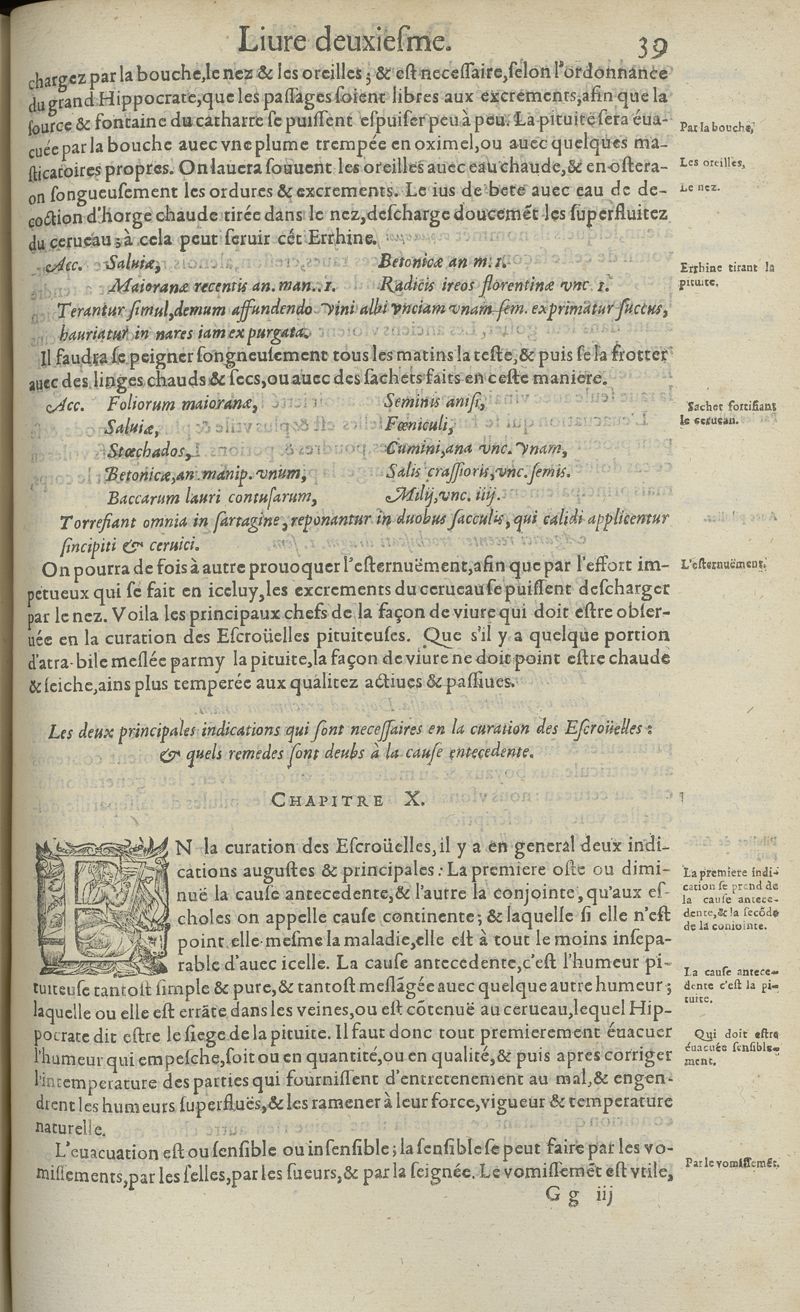 Liure deuxieſme. 39
chargez par la bouche, le nez & les oreilles ; & eſt neceſſaire, ſelon l'ordonnance
du grand Hippocrate, que les paſſages ſoient libres aux excrements, afin que la
ſource & fontaine du catharre ſe puiſſent eſpuiſer peu à peu. La pituite ſera éua-
cuée par la bouche auec vne plume trempée en oximel, ou auec quelques ma-
ſticatoires propres. On lauera ſouuent les oreilles auec eau chaude, & en oſtera-
on ſongueuſement les ordures & excrements. Le ius de bete auec eau de de-
coction d'horge chaude tirée dans le nez, deſcharge doucemēt les ſuperfluitez
du cerueau ; à cela peut ſeruir cét Errhine.
Par la bouche,
Les oreilles,
Le nez.
Acc. Saluiæ, Betonicæ an m. 1.
Maioranæ recentis an. man.. 1. Radicis ireos florentinæ vnc 1.
Terantur ſimul, demum affundendo vini albi vnciam vnam ſem. exprimatur ſuccus,
hauriatur in nares iam expurgata.
Errhine tirant la
pituite,
Il faudra ſe peigner ſongneuſement tous les matins la teſte, & puis ſe la frotter
auec des linges chauds & ſecs, ou auec des ſachets faits en ceſte maniere.
Acc. Foliorum maioranæ, Seminis aniſi,
Saluiæ, Fœniculi,
Stœchados, Cumini, ana vnc. vnam,
Betonicæ, an. manip. vnum, Salis craſſioris, vnc. ſemis.
Baccarum lauri contuſarum, Milij, vnc. iiij.
Torrefiant omnia in ſartagine, reponantur in duobus ſacculis, qui calidi applicentur
ſincipiti & ceruici.
Sachet fortifiant
le cerueau.
On pourra de fois à autre prouoquer l'eſternuëment, afin que par l'effort im-
petueux qui ſe fait en iceluy, les excrements du cerueau ſe puiſſent deſcharger
par le nez. Voila les principaux chefs de la façon de viure qui doit eſtre obſer-
uée en la curation des Eſcroüelles pituiteuſes. Que s'il y a quelque portion
d'atra-bile meſlée parmy la pituite, la façon de viure ne doit point eſtre chaude
& ſeiche, ains plus temperée aux qualitez actiues & paſſiues.
L'eſternuëment.
Les deux principales indications qui ſont neceſſaires en la curation des Eſcroüelles :
& quels remedes ſont deubs à la cauſe entecedente.
CHAPITRE X.
EN la curation des Eſcroüelles, il y a en general deux indi-
cations auguſtes & principales : La premiere oſte ou dimi-
nuë la cauſe antecedente, & l'autre la conjointe, qu'aux eſ-
choles on appelle cauſe continente ; & laquelle ſi elle n'eſt
point elle-meſme la maladie, elle eſt à tout le moins inſepa-
rable d'auec icelle. La cauſe antecedente, c'eſt l'humeur pi-
tuiteuſe tantoſt ſimple & pure, & tantoſt meſlágée auec quelque autre humeur ;
laquelle ou elle eſt errāte dans les veines, ou eſt cōtenuë au cerueau, lequel Hip-
pocrate dit eſtre le ſiege de la pituite. Il faut donc tout premierement éuacuer
l'humeur qui empeſche, ſoit ou en quantité, ou en qualité, & puis apres corriger
l'intemperature des parties qui fourniſſent d'entretenement au mal, & engen-
drent les humeurs ſuperfluës, & les ramener à leur force, vigueur & temperature
naturelle.
La premiere indi-
cation ſe prend de
la cauſe antece-
dente, & la ſecōde
de la conjointe.
La cauſe antece-
dente c'eſt la pi-
tuite.
Qui doit eſtre
éuacuée ſenſible-
ment.
L'euacuation eſt ou ſenſible ou inſenſible ; la ſenſible ſe peut faire par les vo-
miſſements, par les ſelles, par les ſueurs, & par la ſeignée. Le vomiſſemēt eſt vtile,
Par le vomiſſemēt.
G g iij